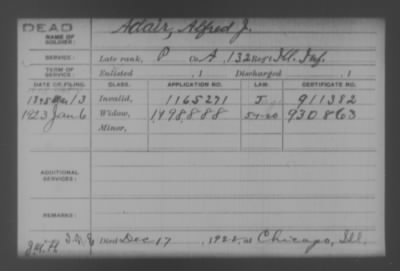 DEAD
NAME OF SOLDIER: Adair, Alfred J.
SERVICE: Late rank, P Co. A, 132 Reg't Ill. Inf.
TERM OF SERVICE: Enlisted , 1 Discharged , 1
DATE OF FILING. CLASS. APPLICATION NO. LAW. CERTIFICATE NO.
13 Invalid, 1165271 J 911382
1923 Jan 6 Widow, 1198888 930863
Minor,
ADDITIONAL SERVICES:
REMARKS:
Died Dec 17, 1922, at Chicago, Ill.